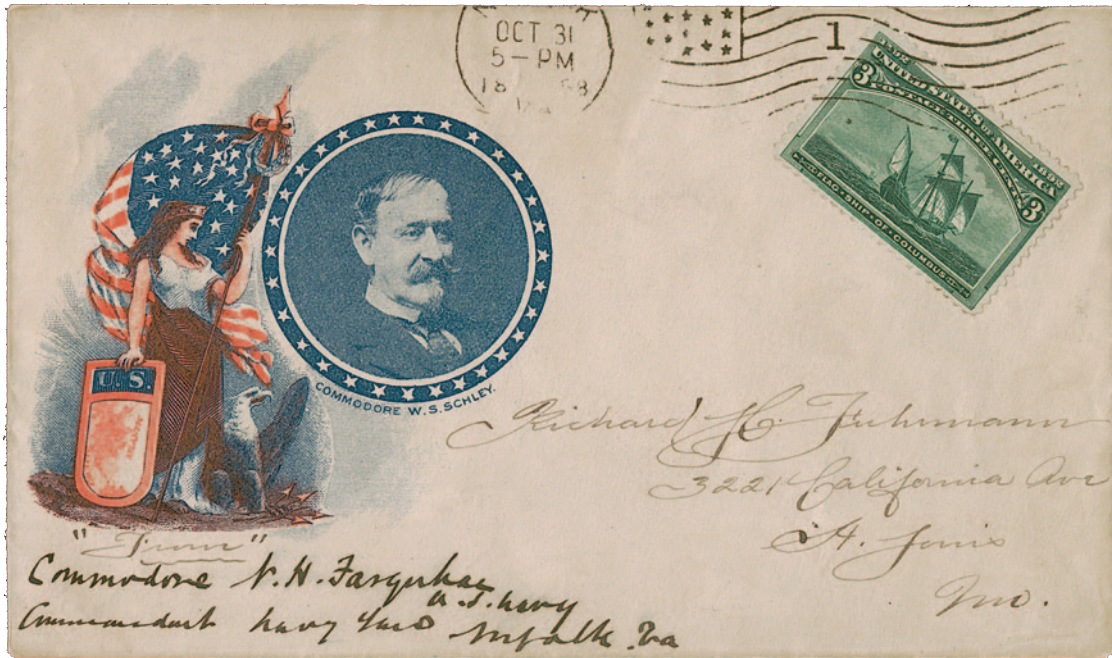 OCT 31
5-PM
18 98
VA.
1
1492 1892
UNITED STATES OF AMERICA
POSTAGE THREE CENTS
3 3
FLAG-SHIP OF COLUMBUS
U.S.
COMMODORE W.S. SCHLEY.
Richard H. Fuhrmann
3221 California Ave
St. Louis
Mo.
"From"
Commodore N. H. Farquhar
U.S. Navy
Commandant Navy Yard Norfolk. Va